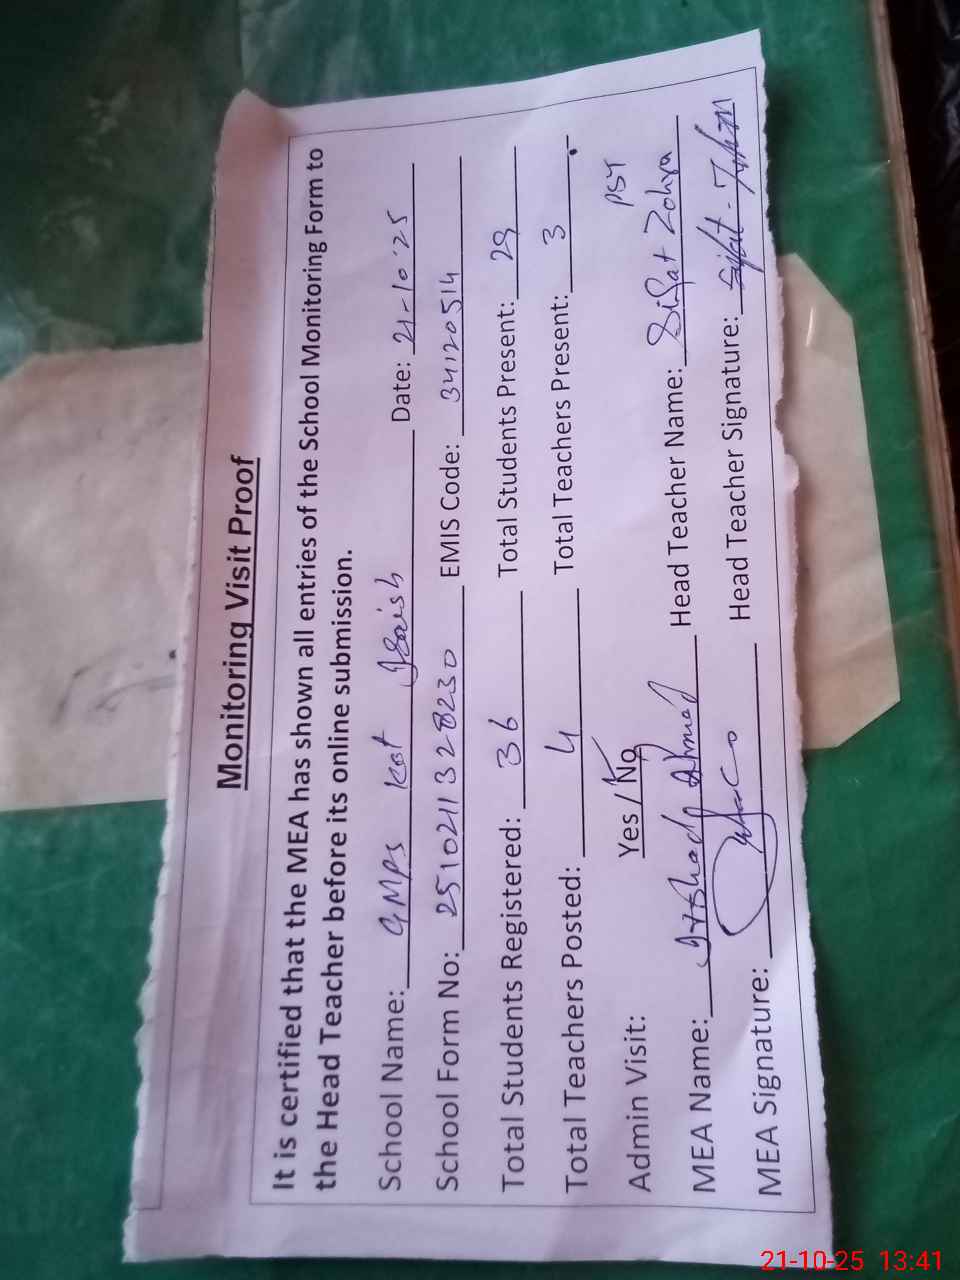 Monitoring Visit Proof
It is certified that the MEA has shown all entries of the School Monitoring Form to
the Head Teacher before its online submission.
School Name: GMPS Kot Date: 21-10-25
School Form No: 2510211328230 EMIS Code: 34120514
Total Students Registered: 36 Total Students Present: 29
Total Teachers Posted: 4 Total Teachers Present: 3
Admin Visit: Yes / No PST
MEA Name: Irshad Ahmed Head Teacher Name: Sifat Zohra
MEA Signature: Head Teacher Signature:
21-10-25 13:41